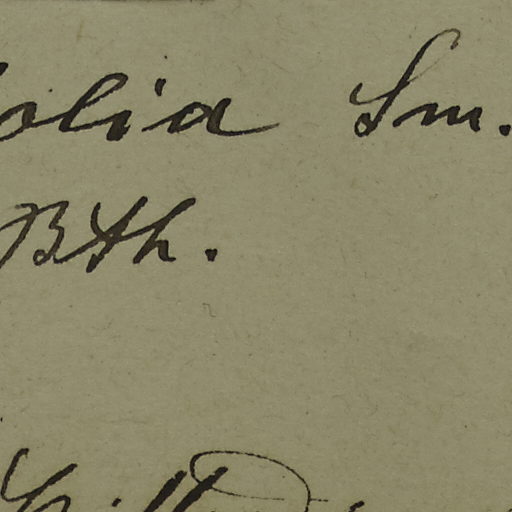 olia Sm.
Bth.